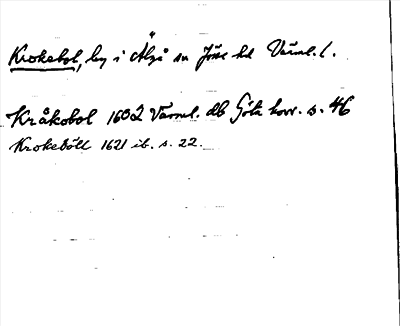 Krokebol, by i Älgå sn Jösse hd Värml. l.
Kråkobol 1602 Värml. db Göta hovr. s. 46
Kroheböll 1621 ib. s. 22.